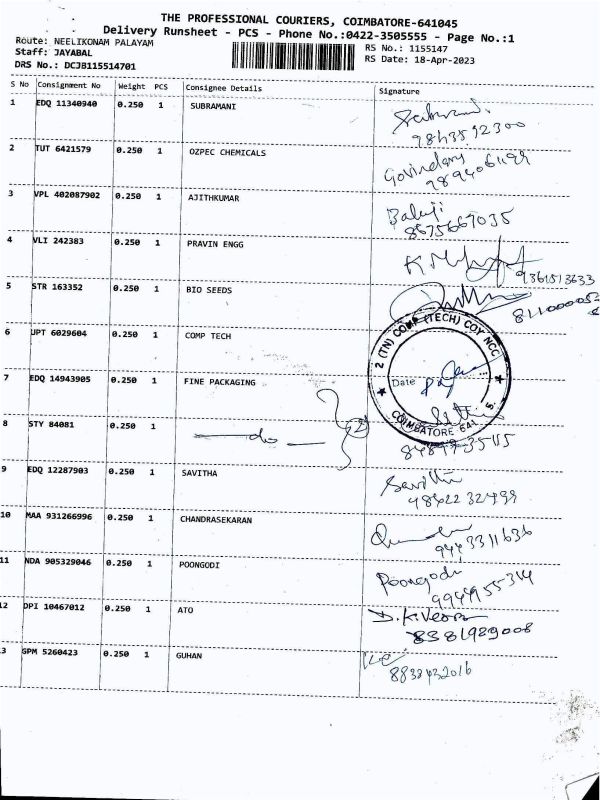 THE PROFESSIONAL COURIERS, COIMBATORE-641045
Delivery Runsheet - PCS - Phone No.:0422-3505555 - Page No.:1
Route: NEELIKONAM PALAYAM
RS No.: 1155147
Staff: JAYABAL
RS Date: 18-Apr-2023
DRS No.: DCJB115514701
S No Consignment No Weight PCS Consignee Details Signature
1 EDQ 11340940 0.250 1 SUBRAMANI
2 TUT 6421579 0.250 1 OZPEC CHEMICALS
Govindaraj
3 VPL 402087902 0.250 1 AJITHKUMAR
Balaji
8675667035
4 VLI 242383 0.250 1 PRAVIN ENGG
9361513633
5 STR 163352 0.250 1 BIO SEEDS
6 JPT 6029604 0.250 1 COMP TECH
2 (TN) COMP (TECH) COY NCC
Date
COIMBATORE 641
7 EDQ 14943905 0.250 1 FINE PACKAGING
8 STY 84081 0.250 1 do
9 EDQ 12287903 0.250 1 SAVITHA
Savitha
9842232499
10 MAA 931266996 0.250 1 CHANDRASEKARAN
9443311636
11 NDA 905329046 0.250 1 POONGODI
Poongodi
12 DPI 10467012 0.250 1 ATO
8381989008
13 GPM 5260423 0.250 1 GUHAN
8838432016